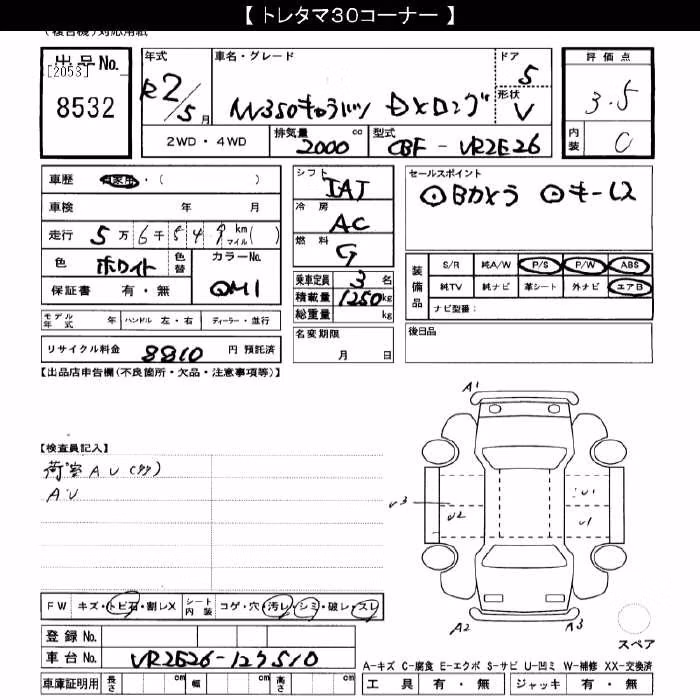 【 トレタマ30コーナー 】
出品No.
[2053]
8532
年式
R2/5月
車名・グレード
NV350キャラバン DXロング
ドア
5
形状
V
評価点
3.5
内装
C
2WD・4WD
排気量
2000cc
型式
CBF-VR2E26
車歴
自家用・( )
車検 年 月
走行 5万6千54 km マイル( )
色
ホワイト
色替
カラーNo.
QM1
保証書 有・無
モデル年式 年
ハンドル 左・右
ディーラー・並行
リサイクル料金 8810円 預託済
シフト
IAT
冷房
AC
燃料
G
乗車定員 3名
積載量 1250kg
総重量 kg
名変期限
月 日
セールスポイント
⊙Bカメラ ⊙キーレス
装備品
S/R 純A/W P/S P/W ABS
純TV 純ナビ 革シート 外ナビ エアB
ナビ型番:
後日品
【出品店申告欄(不良箇所・欠品・注意事項等)】
【検査員記入】
荷室AU(多)
AU
A1
U3
U2
U1
U1
A2
A3
スペア
FW キズ・トビ石・割レX
シート内装 コゲ・穴・汚レ・シミ・破レ・スレ
登録No.
車台No. VR2E26-127510
車庫証明用 長さ cm 幅 cm 高さ cm
A-キズ C-腐食 E-エクボ S-サビ U-凹ミ W-補修 XX-交換済
工具 有・無 ジャッキ 有・無